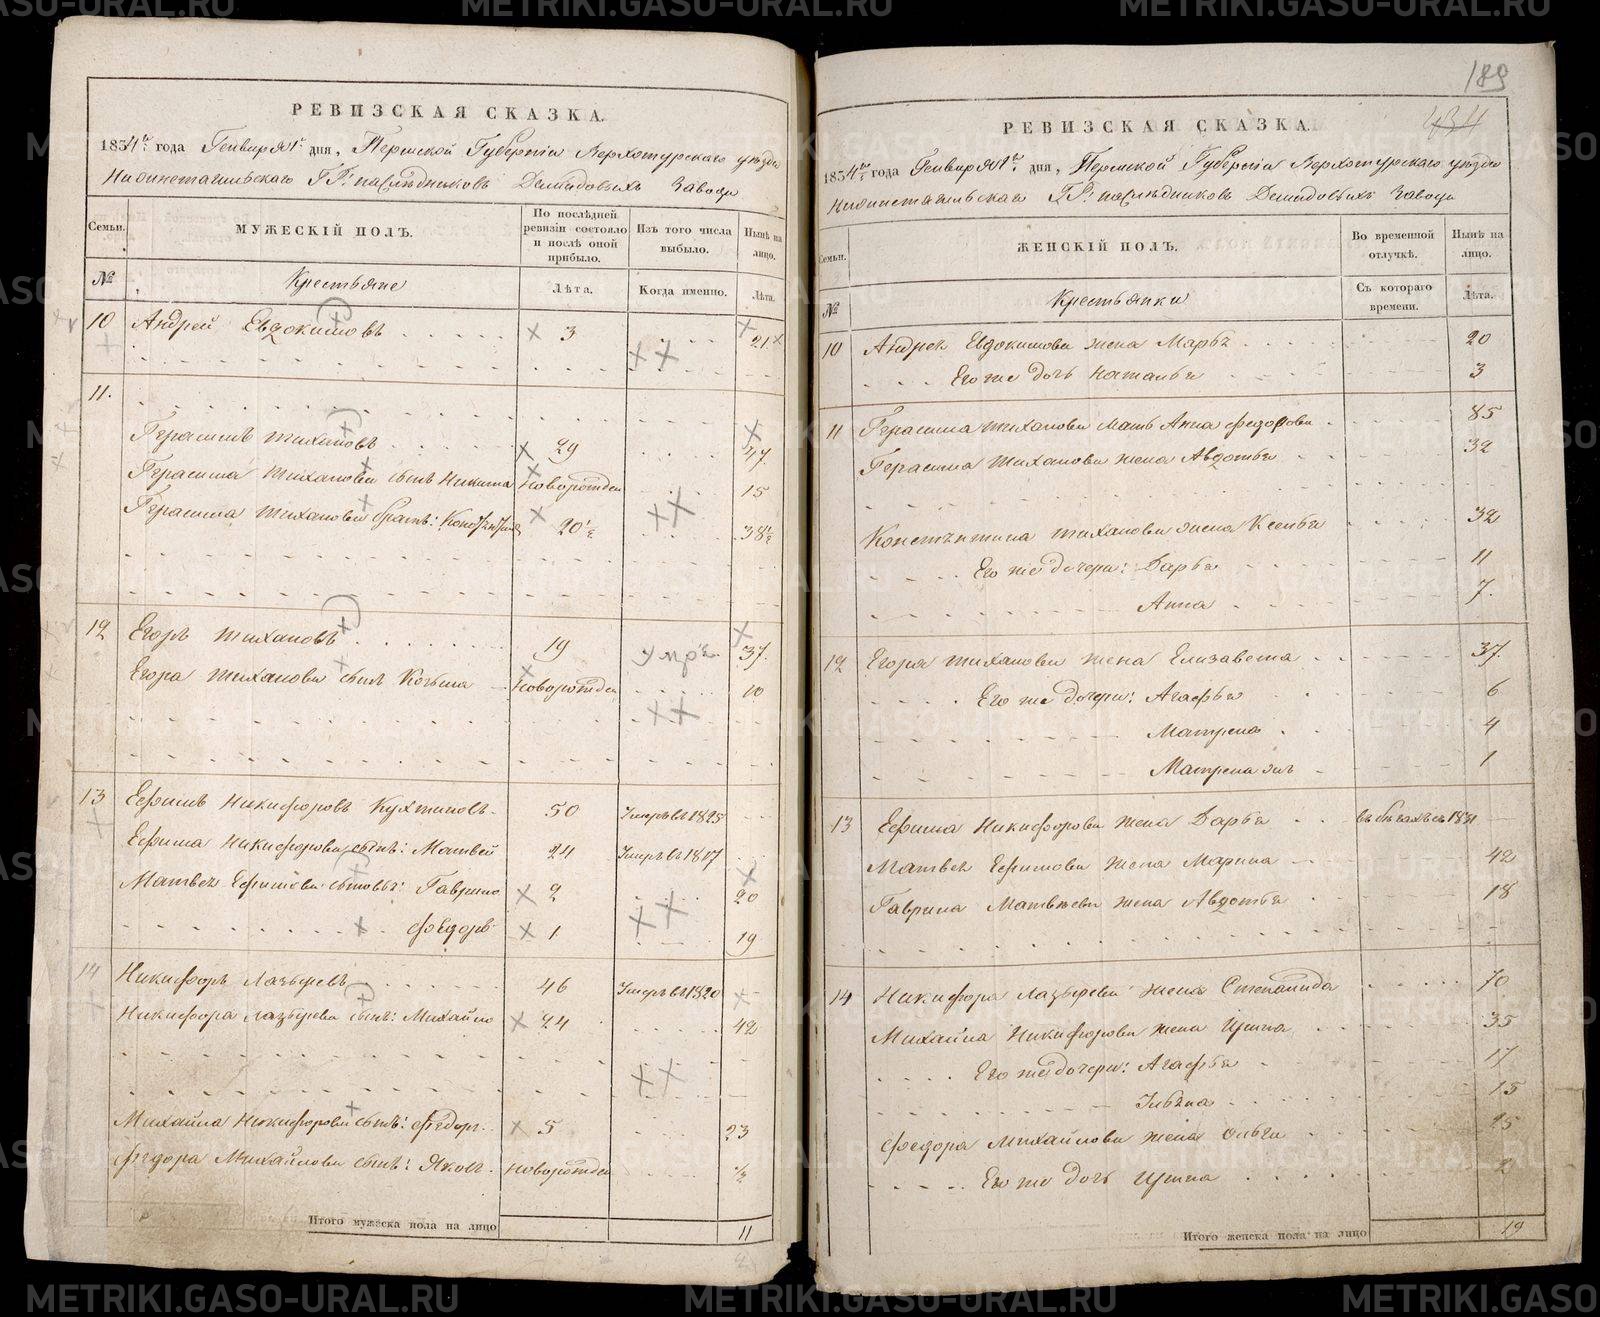 РЕВИЗСКАЯ СКАЗКА.
1834го года Генваря 1го дня, Пермской Губернiи Верхотурскаго уѣзда
Нижнетагильскаго ГГ. наслѣдниковъ Демидовыхъ Завода
Семьи. МУЖЕСКIЙ ПОЛЪ. По послѣдней ревизiи состояло и послѣ оной прибыло. Изъ того числа выбыло. Нынѣ на лицо.
№ Крестьяне Лѣта. Когда именно. Лѣта.
10 Андрей Евдокимовъ 3 21
11.
Герасимъ Тихановъ 29 47
Герасима Тиханова сынъ Никита Новорожден 15
Герасима Тиханова братъ: 20½ 38½
12 Егоръ Тихановъ 19 37.
Егора Тиханова сынъ Козьма Новорожден 10
13 Ефимъ Никифоровъ 50 Умеръ въ 1825
Ефима Никифорова сынъ: Матвей 24 Умеръ въ 1817
Матвея Ефимова сыновья: Гаврило 2 20
Федоръ 1 19
14 Никифоръ Лазаревъ 46 Умеръ въ 1820
Никифора Лазарева сынъ: Михайло 24 42
Михайла Никифорова сынъ: Федоръ 5 23
Федора Михайлова сынъ: Яковъ Новорожден ½
Итого мужеска пола на лицо 11
189
434
РЕВИЗСКАЯ СКАЗКА.
1834го года Генваря 1го дня, Пермской Губернiи Верхотурскаго уѣзда
Нижнетагильскаго ГГ. наслѣдниковъ Демидовыхъ Завода
Семьи. ЖЕНСКIЙ ПОЛЪ. Во временной отлучкѣ. Нынѣ на лицо.
№ Крестьянки Съ котораго времени. Лѣта.
10 Андрея Евдокимова жена Марья 20
Его же дочь Наталья 3
11 Герасима Тиханова мать Анна Федорова 85
Герасима Тиханова жена Авдотья 32
Константина Тиханова жена Ксенья 32
Его же дочери: Дарья 11
Анна 7.
12 Егора Тиханова жена Елизавета 37.
Его же дочери: Агафья 6
Матрена 4
Матрена же 1
13 Ефима Никифорова жена Дарья въ бѣгахъ съ
Матвея Ефимова жена Марина 42
Гаврила Матвѣева жена Авдотья 18
14 Никифора Лазарева жена Степанида 70
Михайла Никифорова жена Ирина 35
Его же дочери: Агафья 17
Ульяна 15
Федора Михайлова жена Ольга 25
Его же дочь Ирина 2
Итого женска пола на лицо 19
METRIKI.GASO-URAL.RU